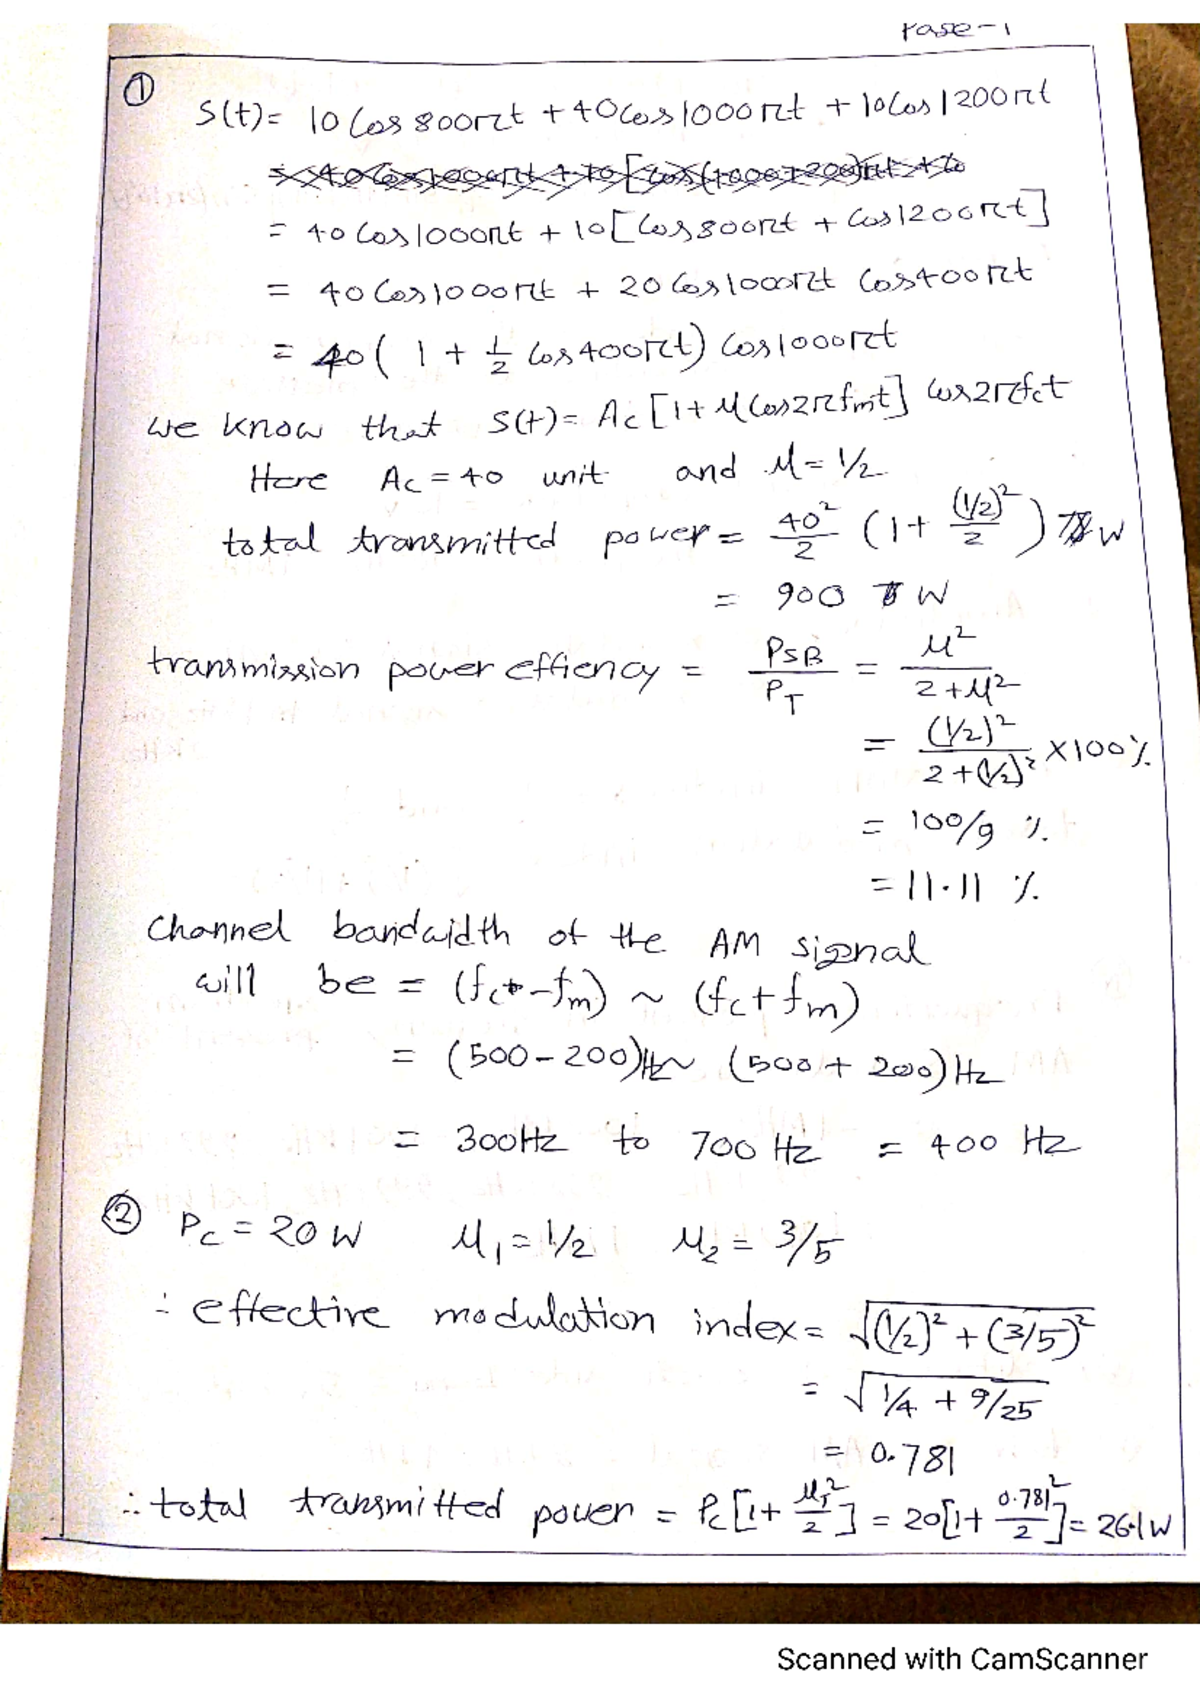 Page-1
①
S(t)= 10 Cos 800πt + 40cos1000πt + 10Cos1200πt
= 40 Cos1000πt + 10[Cos800πt + Cos1200πt]
= 40 Cos1000πt + 20 Cos1000πt Cos400πt
= 40( 1 + 1/2 Cos400πt) Cos1000πt
we know that S(t)= Ac[1+ μCos2πfmt] Cos2πfct
Here Ac = 40 unit and μ= 1/2
total transmitted power = 40²/2 (1+ (1/2)²/2) W
= 900 W
transmission power effiency = PSB/PT = μ²/2+μ²
= (1/2)²/2+(1/2)² X100%
= 100/9 %
= 11.11 %
Channel bandwidth of the AM signal
will be = (fc-fm) ~ (fc+fm)
= (500-200)Hz~ (500+200)Hz
= 300Hz to 700 Hz = 400 Hz
② Pc = 20 W μ1 = 1/2 μ2 = 3/5
∴ effective modulation index = √(1/2)² + (3/5)²
= √1/4 + 9/25
= 0.781
∴ total transmitted power = Pc[1+ μT²/2] = 20[1+ 0.781²/2] = 26.1W
Scanned with CamScanner